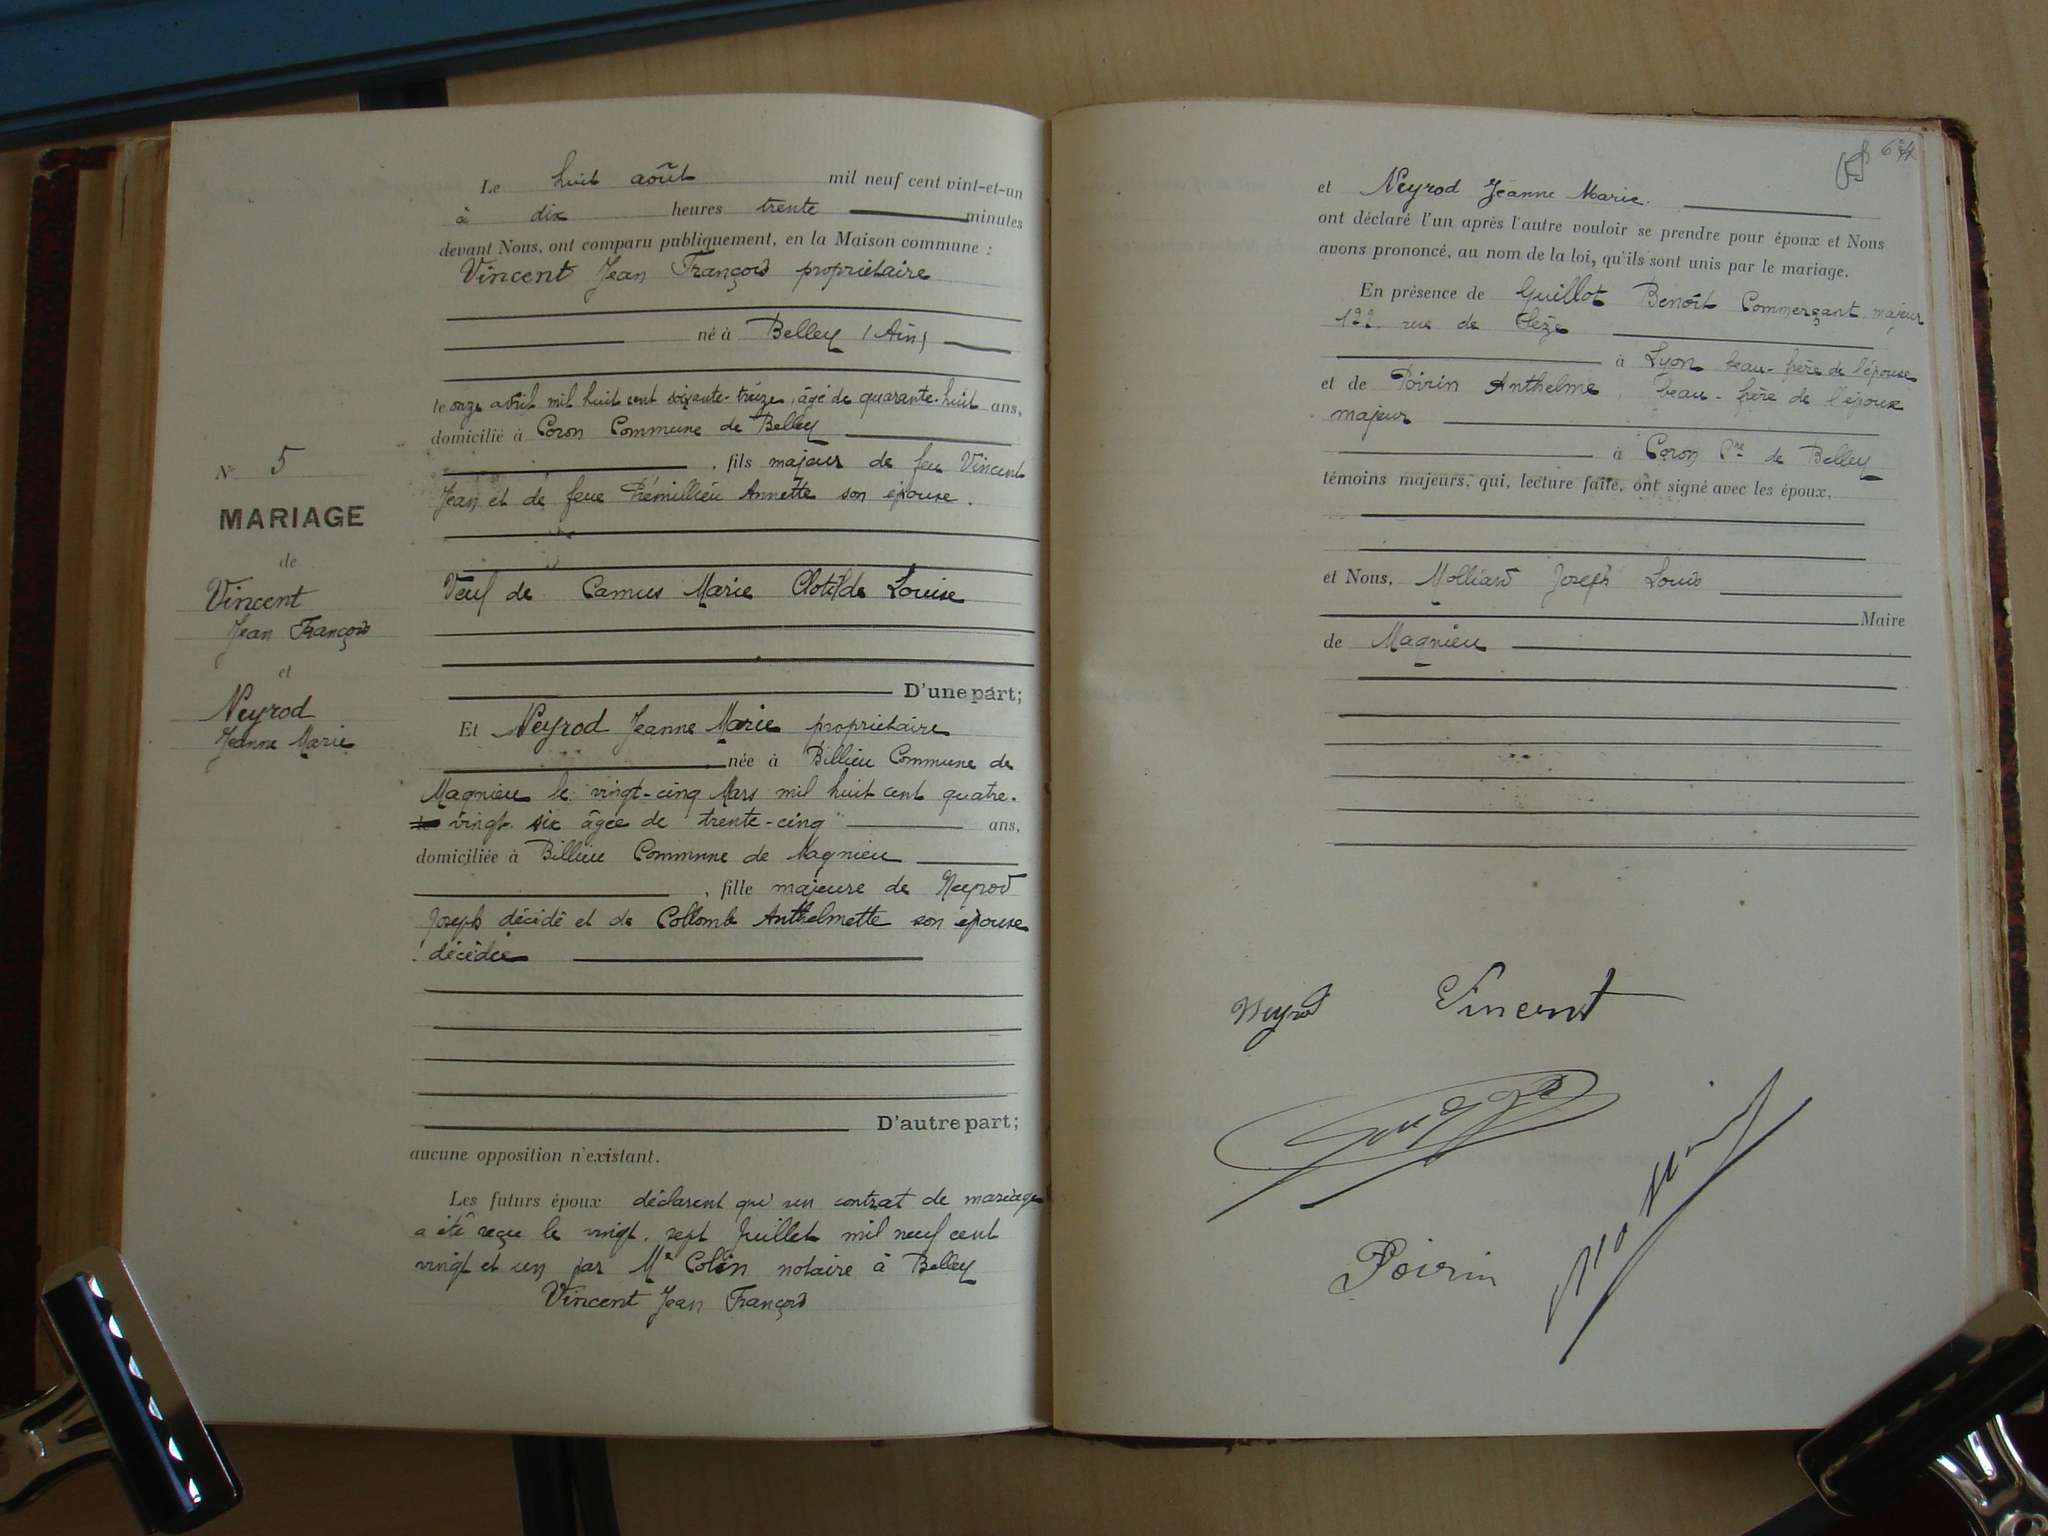 N° 5
MARIAGE
de
Vincent
Jean François
et
Neyrod
Jeanne Marie
Le huit août mil neuf cent vint-et-un
à dix heures trente minutes
devant Nous, ont comparu publiquement, en la Maison commune :
Vincent Jean François propriétaire
né à Belley (Ain)
le onze avril mil huit cent soixante-treize, âgé de quarante-huit ans,
domicilié à Coron Commune de Belley
, fils majeur de feu Vincent
Jean et de feue Prémillieu Annette son épouse.
Veuf de Camus Marie Clotilde Louise
D'une part;
Et Neyrod Jeanne Marie propriétaire
née à Billieu Commune de
Magnieu le vingt-cinq Mars mil huit cent quatre-
vingt-six âgée de trente-cinq ans,
domiciliée à Billieu Commune de Magnieu
, fille majeure de Neyrod
Joseph décédé et de Collomb Anthelmette son épouse
décédée
D'autre part;
aucune opposition n'existant.
Les futurs époux déclarent qu'un contrat de mariage
a été reçu le vingt-sept Juillet mil neuf cent
vingt et un par Me Colin notaire à Belley
Vincent Jean François
et Neyrod Jeanne Marie.
ont déclaré l'un après l'autre vouloir se prendre pour époux et Nous
avons prononcé, au nom de la loi, qu'ils sont unis par le mariage.
En présence de Guillot Benoît Commerçant majeur
rue de
à Lyon beau-frère de l'épouse
et de Poirin Anthelme, beau-frère de l'époux
majeur
à Coron Cne de Belley
témoins majeurs, qui, lecture faite, ont signé avec les époux,
et Nous, Molliard Joseph Louis
Maire
de Magnieu
Neyrod Vincent
Poirin